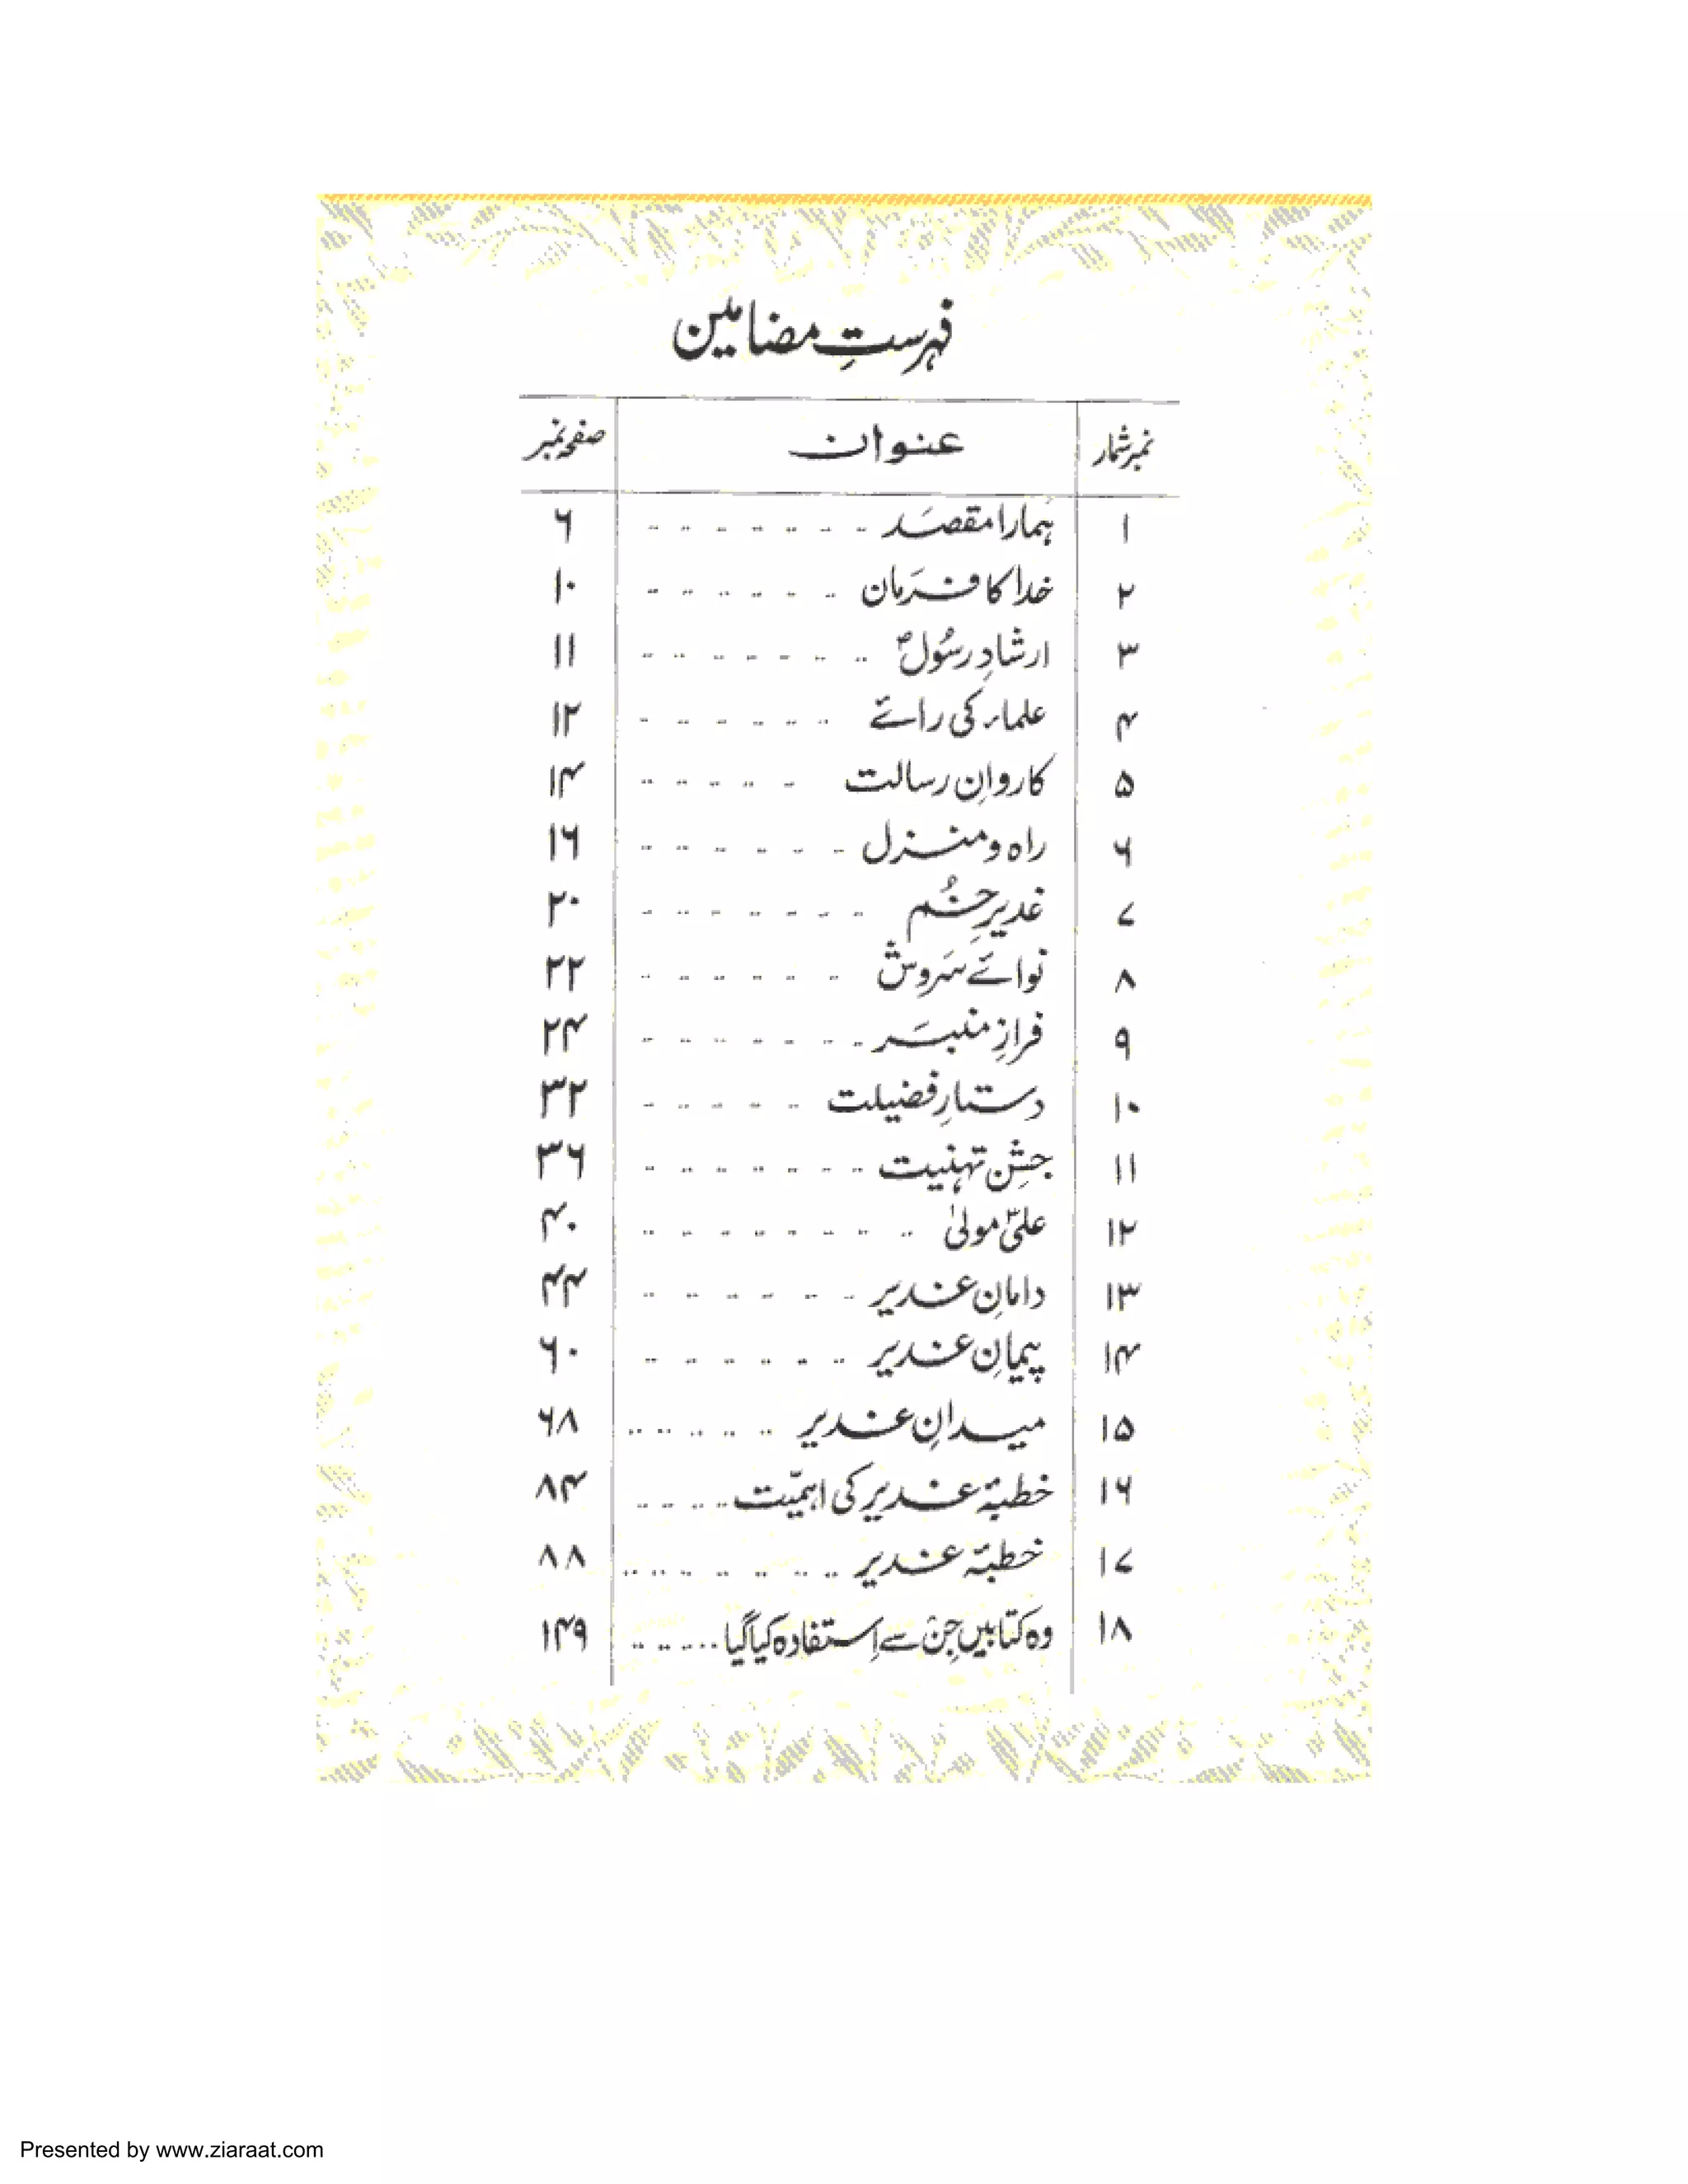 فہرستِ مضامین
نمبر شمار عنوان صفحہ نمبر
۱ ہمارا مقصَد ۶
۲ خدا کا فرَمان ۱۰
۳ ارشادِ رسُولؐ ۱۱
۴ علماء کی رائے ۱۲
۵ کاروانِ رسالت ۱۴
۶ راہ و منزل ۱۶
۷ غدیرِ خُم ۲۰
۸ نوائے سَروش ۲۲
۹ فرازِ منبَر ۲۴
۱۰ دستارِ فضیلت ۳۲
۱۱ جشنِ تہنیت ۳۶
۱۲ علیؑ مولیٰ ۴۰
۱۳ دامانِ غدیر ۴۴
۱۴ پیمانِ غدیر ۶۰
۱۵ میدانِ غدیر ۶۸
۱۶ خطبۂ غدیر کی اہمیّت ۸۴
۱۷ خطبۂ غدیر ۸۸
۱۸ وہ کتابیں جِن سے اِستفادہ کیا گیا ۱۴۹
Presented by www.ziaraat.com